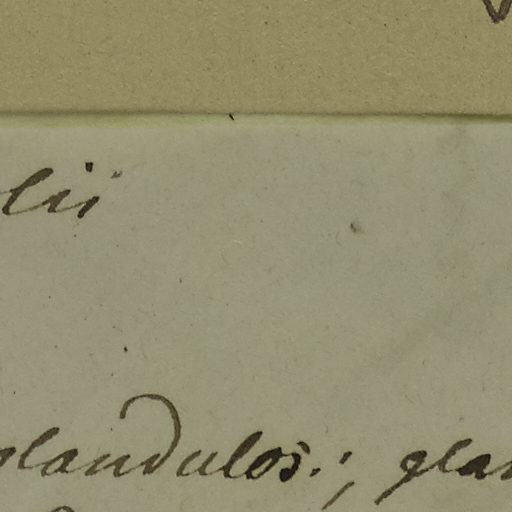 lii
glandulos.; glan